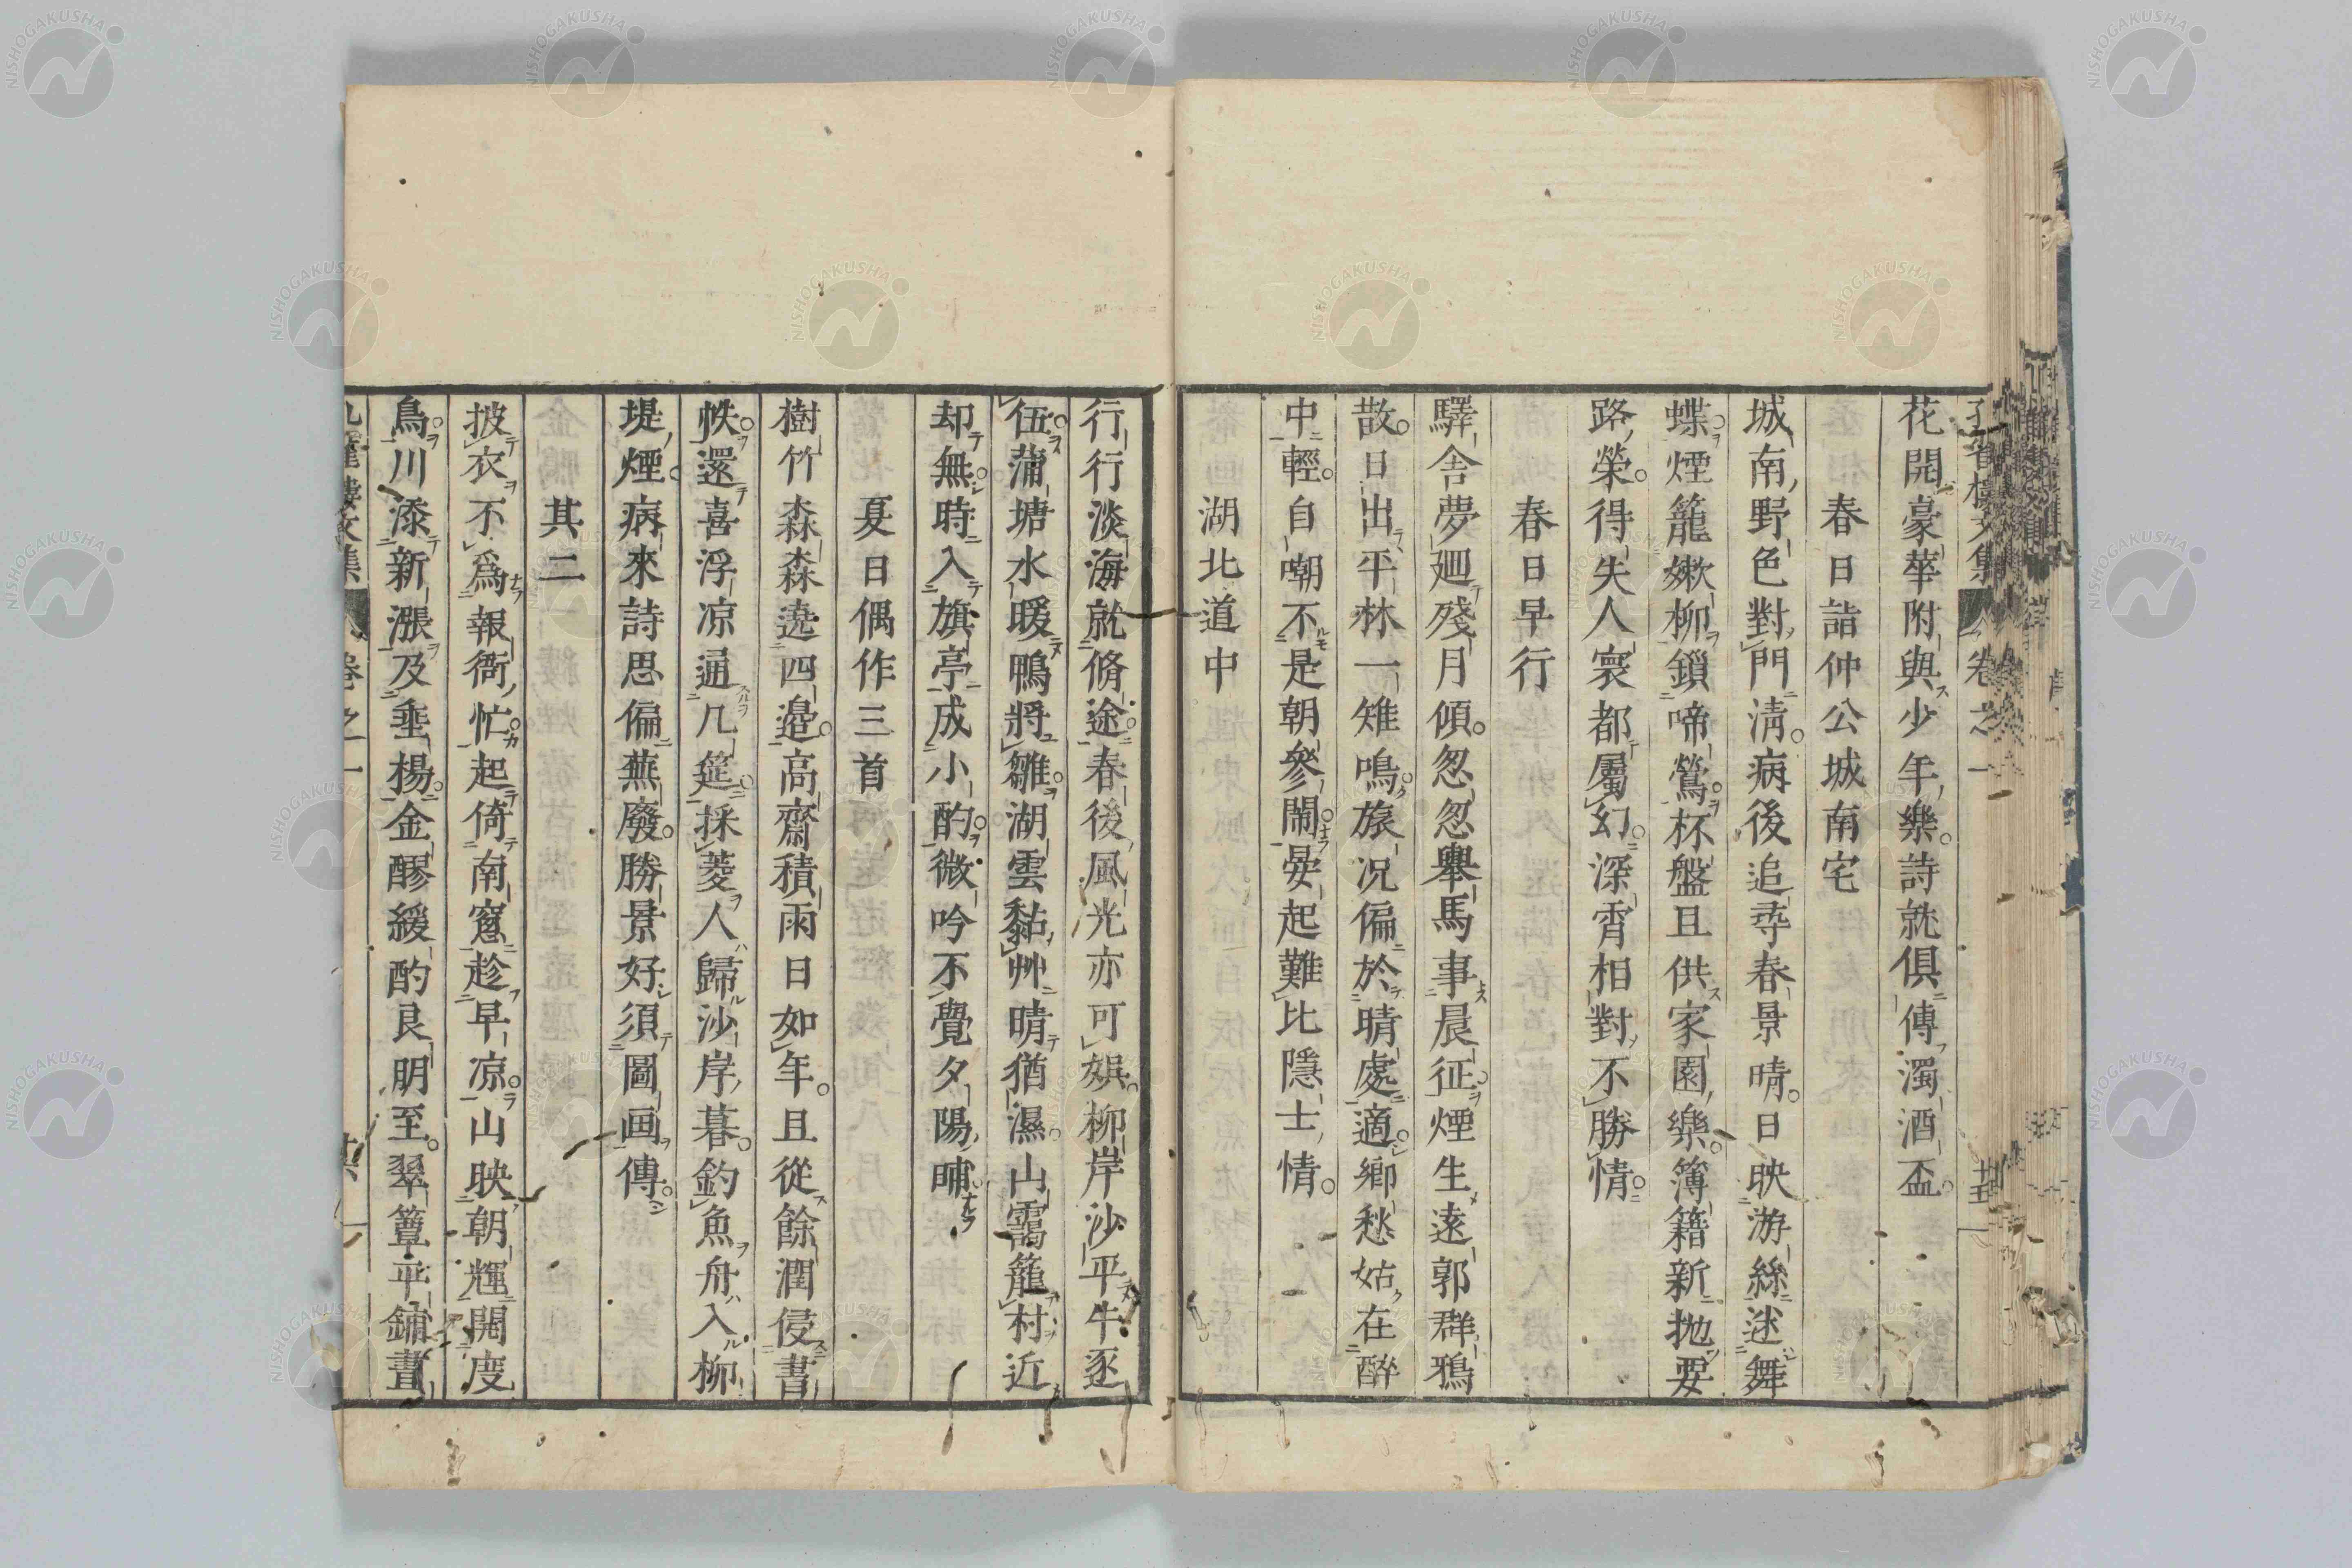 花開豪華附與少年樂詩就俱傳濁酒盃
春日詣仲公城南宅
城南野色對門淸病後追尋春景晴日映游絲迷舞
蝶煙籠嫩柳鎖啼鶯杯盤且供家園樂簿籍新抛要
路榮得失人寰都屬幻深宵相對不勝情
春日早行
驛舎夢廻殘月傾怱怱舉馬事晨征煙生遠郭群鴉
散日出平林一雉鳴旅况偏於晴處適鄉愁姑在醉
中輕自嘲不是朝參鬧晏起難比隱士情
湖北道中
行行淡海就脩途春後風光亦可娯柳岸沙平牛逐
伍蒲塘水暖鴨將雛湖雲黏艸晴猶濕山靄籠村近
却無時入旗亭成小酌微吟不覺夕陽晡
夏日偶作三首
樹竹森森遶四邉高齋積雨日如年且從餘潤侵書
帙還喜浮凉通几筵採菱人歸沙岸暮釣魚舟入柳
堤煙病來詩思偏蕪廢勝景好須圖画傳
其二
披衣不爲報衙忙起倚南窓趁早凉山映朝輝開度
鳥川添新漲及垂楊金醪緩酌良朋至翠簟平鋪晝
卷之一